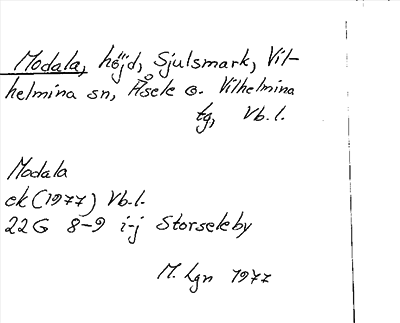 Modala, höjd, Sjulsmark, Vil-
helmina sn, Åsele o. Vilhelmina
tg, Vb.l.
Modala
ek (1977) Vb.l.
22G 8-9 i-j Storseleby
M. Lgn 1977